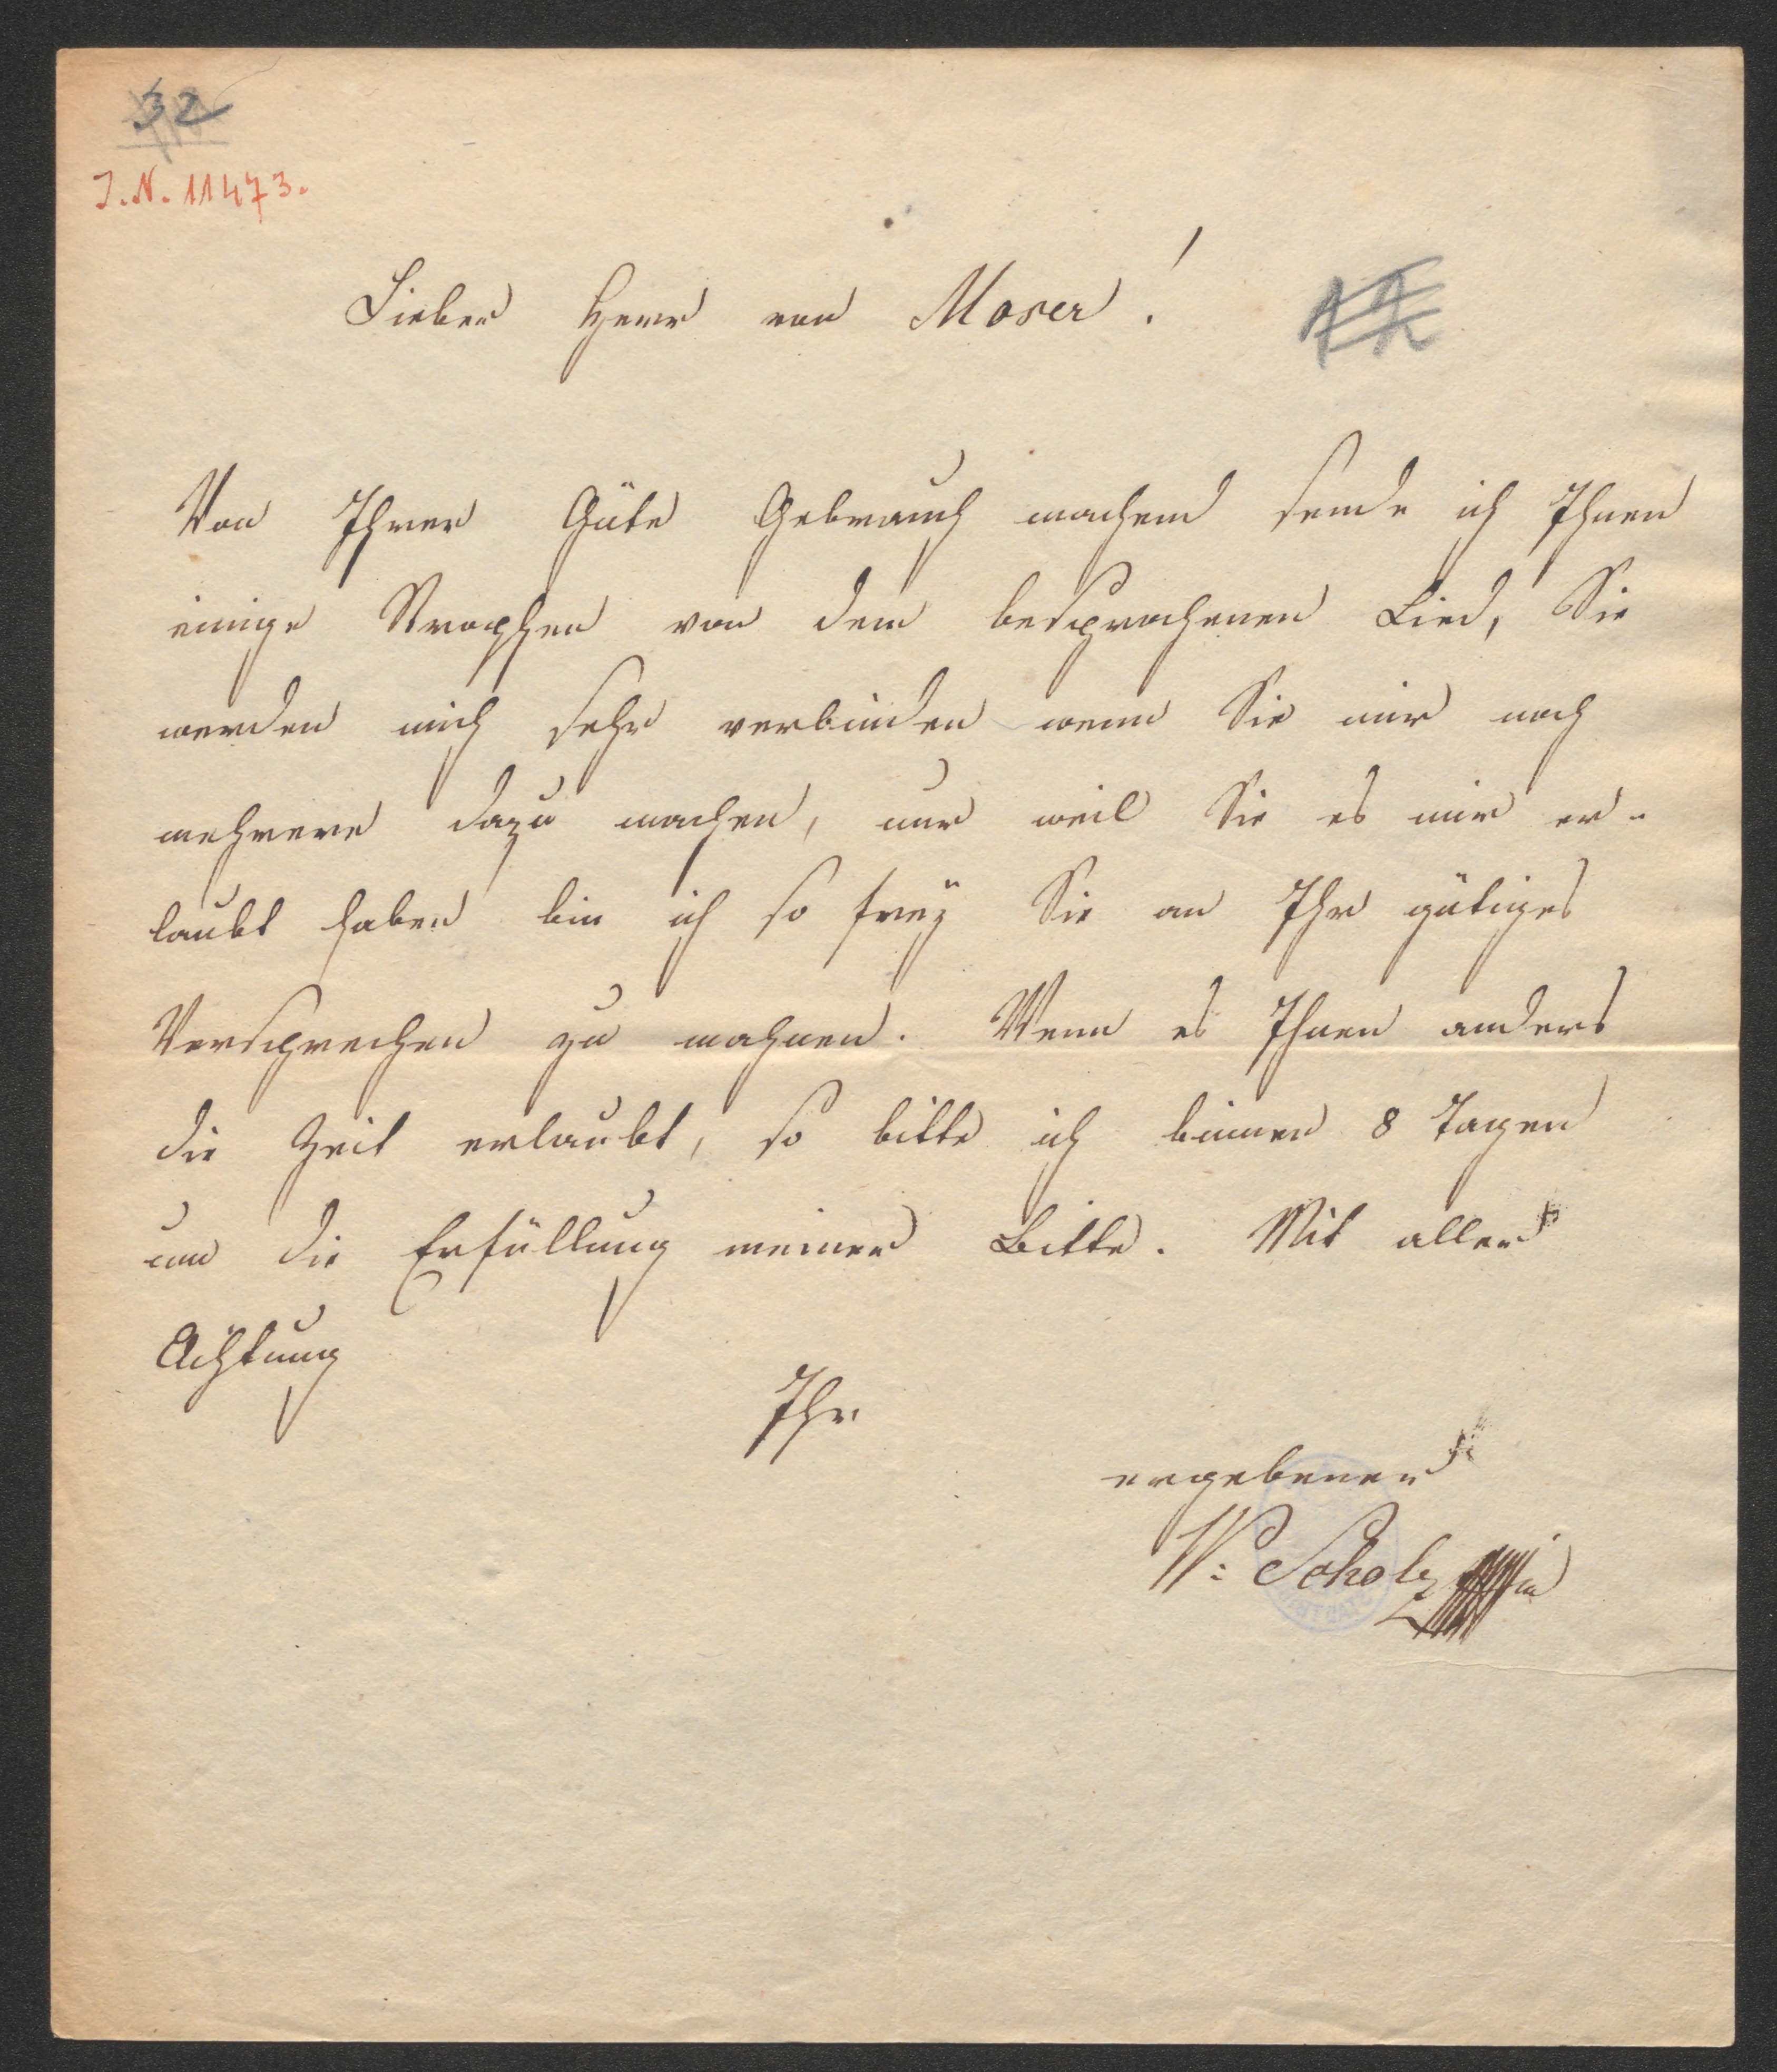 32
I.N. 11473.
Lieber Herr von Moser!
Von Ihrer Güte Gebrauch machend sende ich Ihnen
einige Strophen von dem besprochenen Lied, Sie
werden mich sehr verbinden wenn Sie mir noch
mehrere dazu machen, nur weil Sie es mir er-
laubt haben bin ich so freÿ Sie an Ihr gütiges
Versprechen zu mahnen. Wenn es Ihnen anders
die Zeit erlaubt, so bitte ich binnen 8 Tagen
um die Erfüllung meiner Bitte. Mit aller
Achtung
Ihr
ergebener
W: Scholz